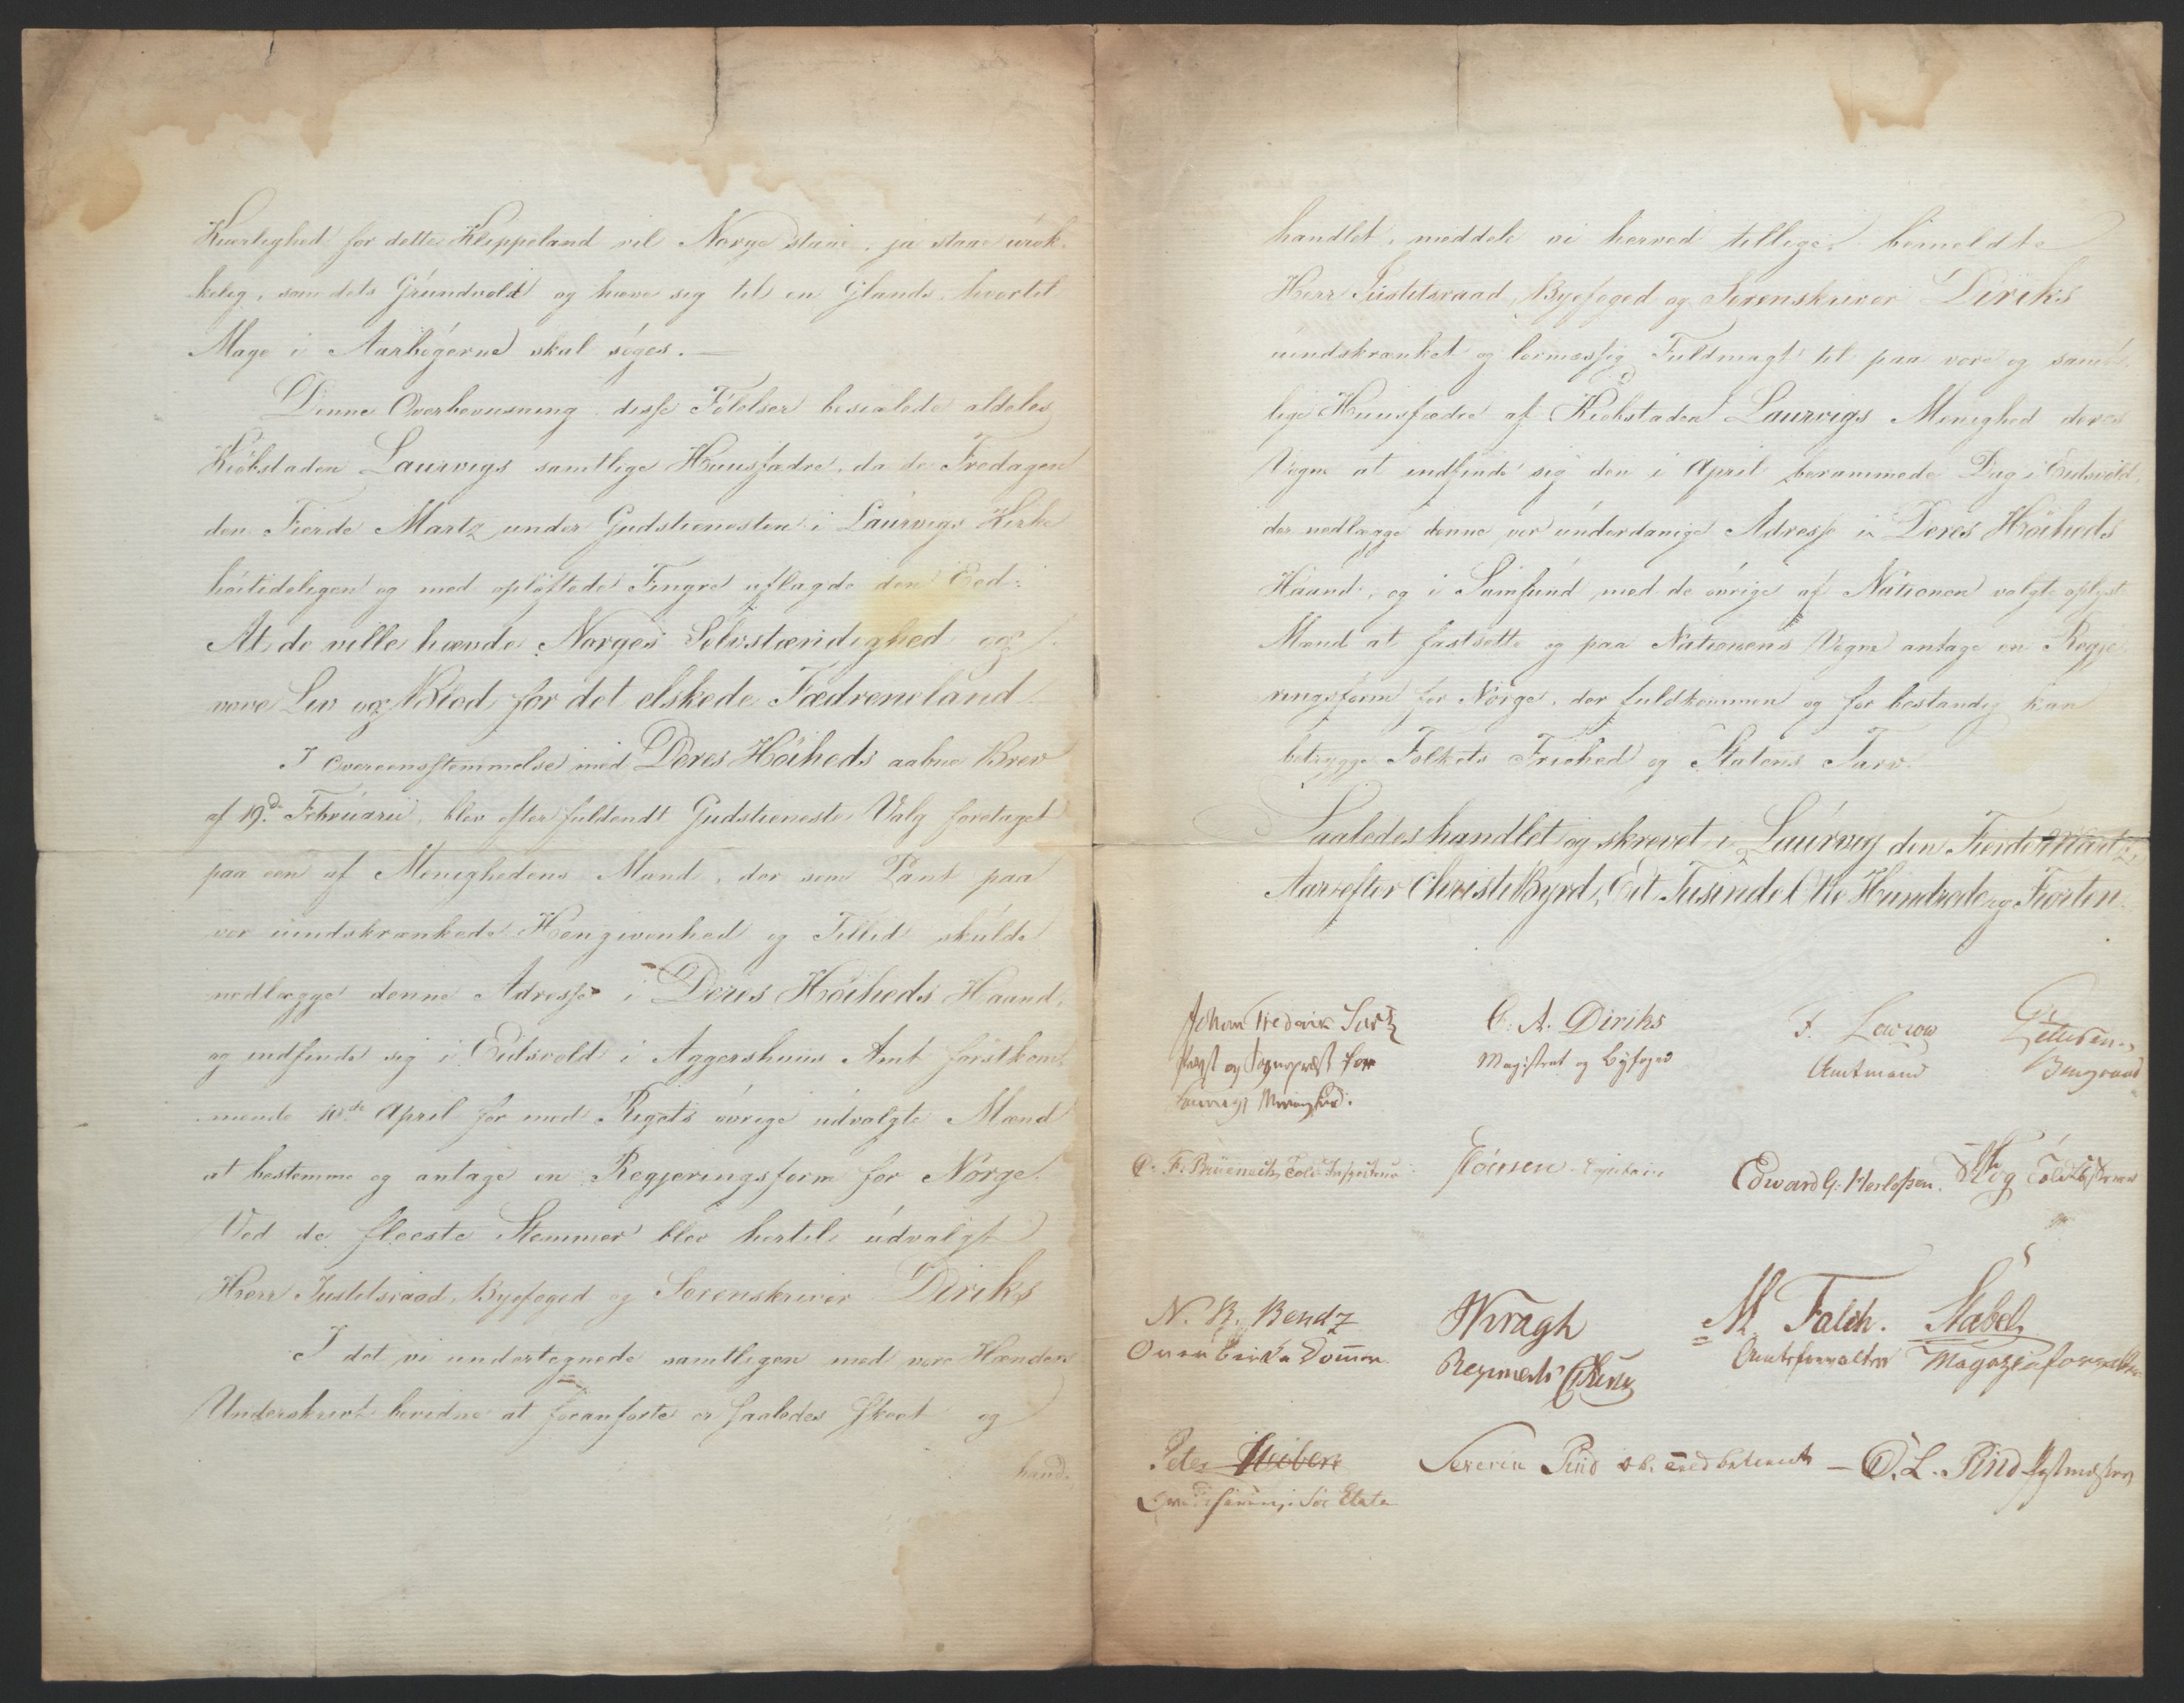 Kierlighed for dette Klippeland vil Norge staae, ja staae urok-
kelig, som dets Grundvold og hæve sig til en Glands, hvortil
Mage i Aarbøgerne skal søges. —
Denne Overbeviisning disse Følelser besialede aldeles
Kiøbstaden Laurvigs samtlige Huusfædre, da de Fredagen
den Fierde Martz under Gudstienesten i Laurvigs Kirke
høitideligen og med opløftede Fingre aflagde den Eed:
At de ville hævde Norges Selvstændighed og
vove Liv og Blod for det elskede Fædreneland.
I Overeensstemmelse med Deres Høiheds aabne Brev
af 19de Februarii, blev efter fuldendt Gudstieneste Valg foretaget
paa een af Menighedens Mænd, der som Pant paa
vor uindskrænkede Hengivenhed og Tillid skulde
nedlægge denne Adresse i Deres Høiheds Haand,
og indfinde sig i Eidsvold i Aggershuus Amt førstkom-
mende 10de April for med Rigets øvrige udvalgte Mænd
at bestemme og antage en Regjeringsform for Norge.
Ved de fleeste Stemmer blev hertil udvalgt
Herr Justitsraad, Byefoged og Sorenskriver Diriks
I det vi undertegnede samtligen med vore Hænders
Underskrivt bevidne at foranførte er saaledes skeet og
hand-
handlet, meddele vi herved tillige bemeldte
Herr Justitsraad, Byefoged og Sorenskriver Diriks
uindskrænket og lovmæssig Fuldmagt til paa vore og samt-
lige Huusfædre af Kiøbstaden Laurvigs Menighed deres
Vegne at indfinde sig den i April berammede Dag i Eidsvold,
der nedlægge denne vor underdanige Adresse i Deres Høiheds
Haand, og i Samfund med de øvrige af Nationen valgte oplyste
Mænd at fastsætte og paa Nationens Vegne antage en Regje-
ringsform for Norge, der fuldkommen og for bestandig kan
betrygge Folkets Friehed og Statens Tarv.
Saaledes handlet og skrevet i Laurvig den Fierde Martz,
Aar efter Christi Byrd, Eet Tusinde Otte Hundrede og Fiorten.
Johan Frederik Sartz C. A. Diriks F. Løvzow
Provst og Sognepræst for Magistrat og Byfoged Amtmand
Laurvigs Menighed.
Told Inspecteur Capitain Edward G.
N. B. Bendz Kragh M. Falch. Stabel
Over Birke Dommer Regiments Chirurg Amtsforvalter Magazinforvalter
Peter Severin Pind O. L. Pind Postmester
i Søe Etaten